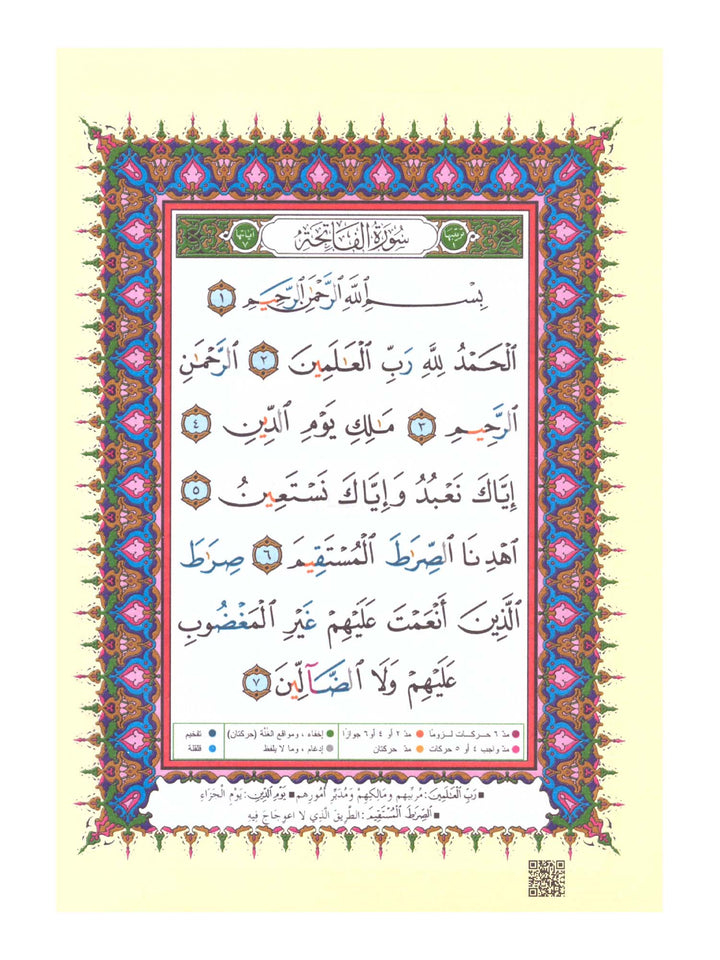 ترتيبها ١ سُورَةُ الفَاتِحَةِ آياتها ٧
بِسْمِ ٱللَّهِ ٱلرَّحْمَٰنِ ٱلرَّحِيمِ ١
ٱلْحَمْدُ لِلَّهِ رَبِّ ٱلْعَٰلَمِينَ ٢ ٱلرَّحْمَٰنِ
ٱلرَّحِيمِ ٣ مَٰلِكِ يَوْمِ ٱلدِّينِ ٤
إِيَّاكَ نَعْبُدُ وَإِيَّاكَ نَسْتَعِينُ ٥
ٱهْدِنَا ٱلصِّرَٰطَ ٱلْمُسْتَقِيمَ ٦ صِرَٰطَ
ٱلَّذِينَ أَنْعَمْتَ عَلَيْهِمْ غَيْرِ ٱلْمَغْضُوبِ
عَلَيْهِمْ وَلَا ٱلضَّآلِّينَ ٧
مدّ ٦ حركات لزومًا مدّ ٢ أو ٤ أو ٦ جوازًا إخفاء ، ومواقع الغُنَّة (حركتان) تفخيم
مدّ واجب ٤ أو ٥ حركات مدّ حركتان إدغام ، وما لا يلفظ قلقلة
رَبِّ ٱلْعَٰلَمِينَ: مُرَبِّيهم وَمَالِكِهِمْ وَمُدَبِّرِ أُمُورِهِم يَوْمِ ٱلدِّينِ: يَوْمِ الجَزَاءِ
ٱلصِّرَٰطَ ٱلْمُسْتَقِيمَ: الطَّرِيقَ الَّذِي لا اعوِجَاجَ فِيهِ